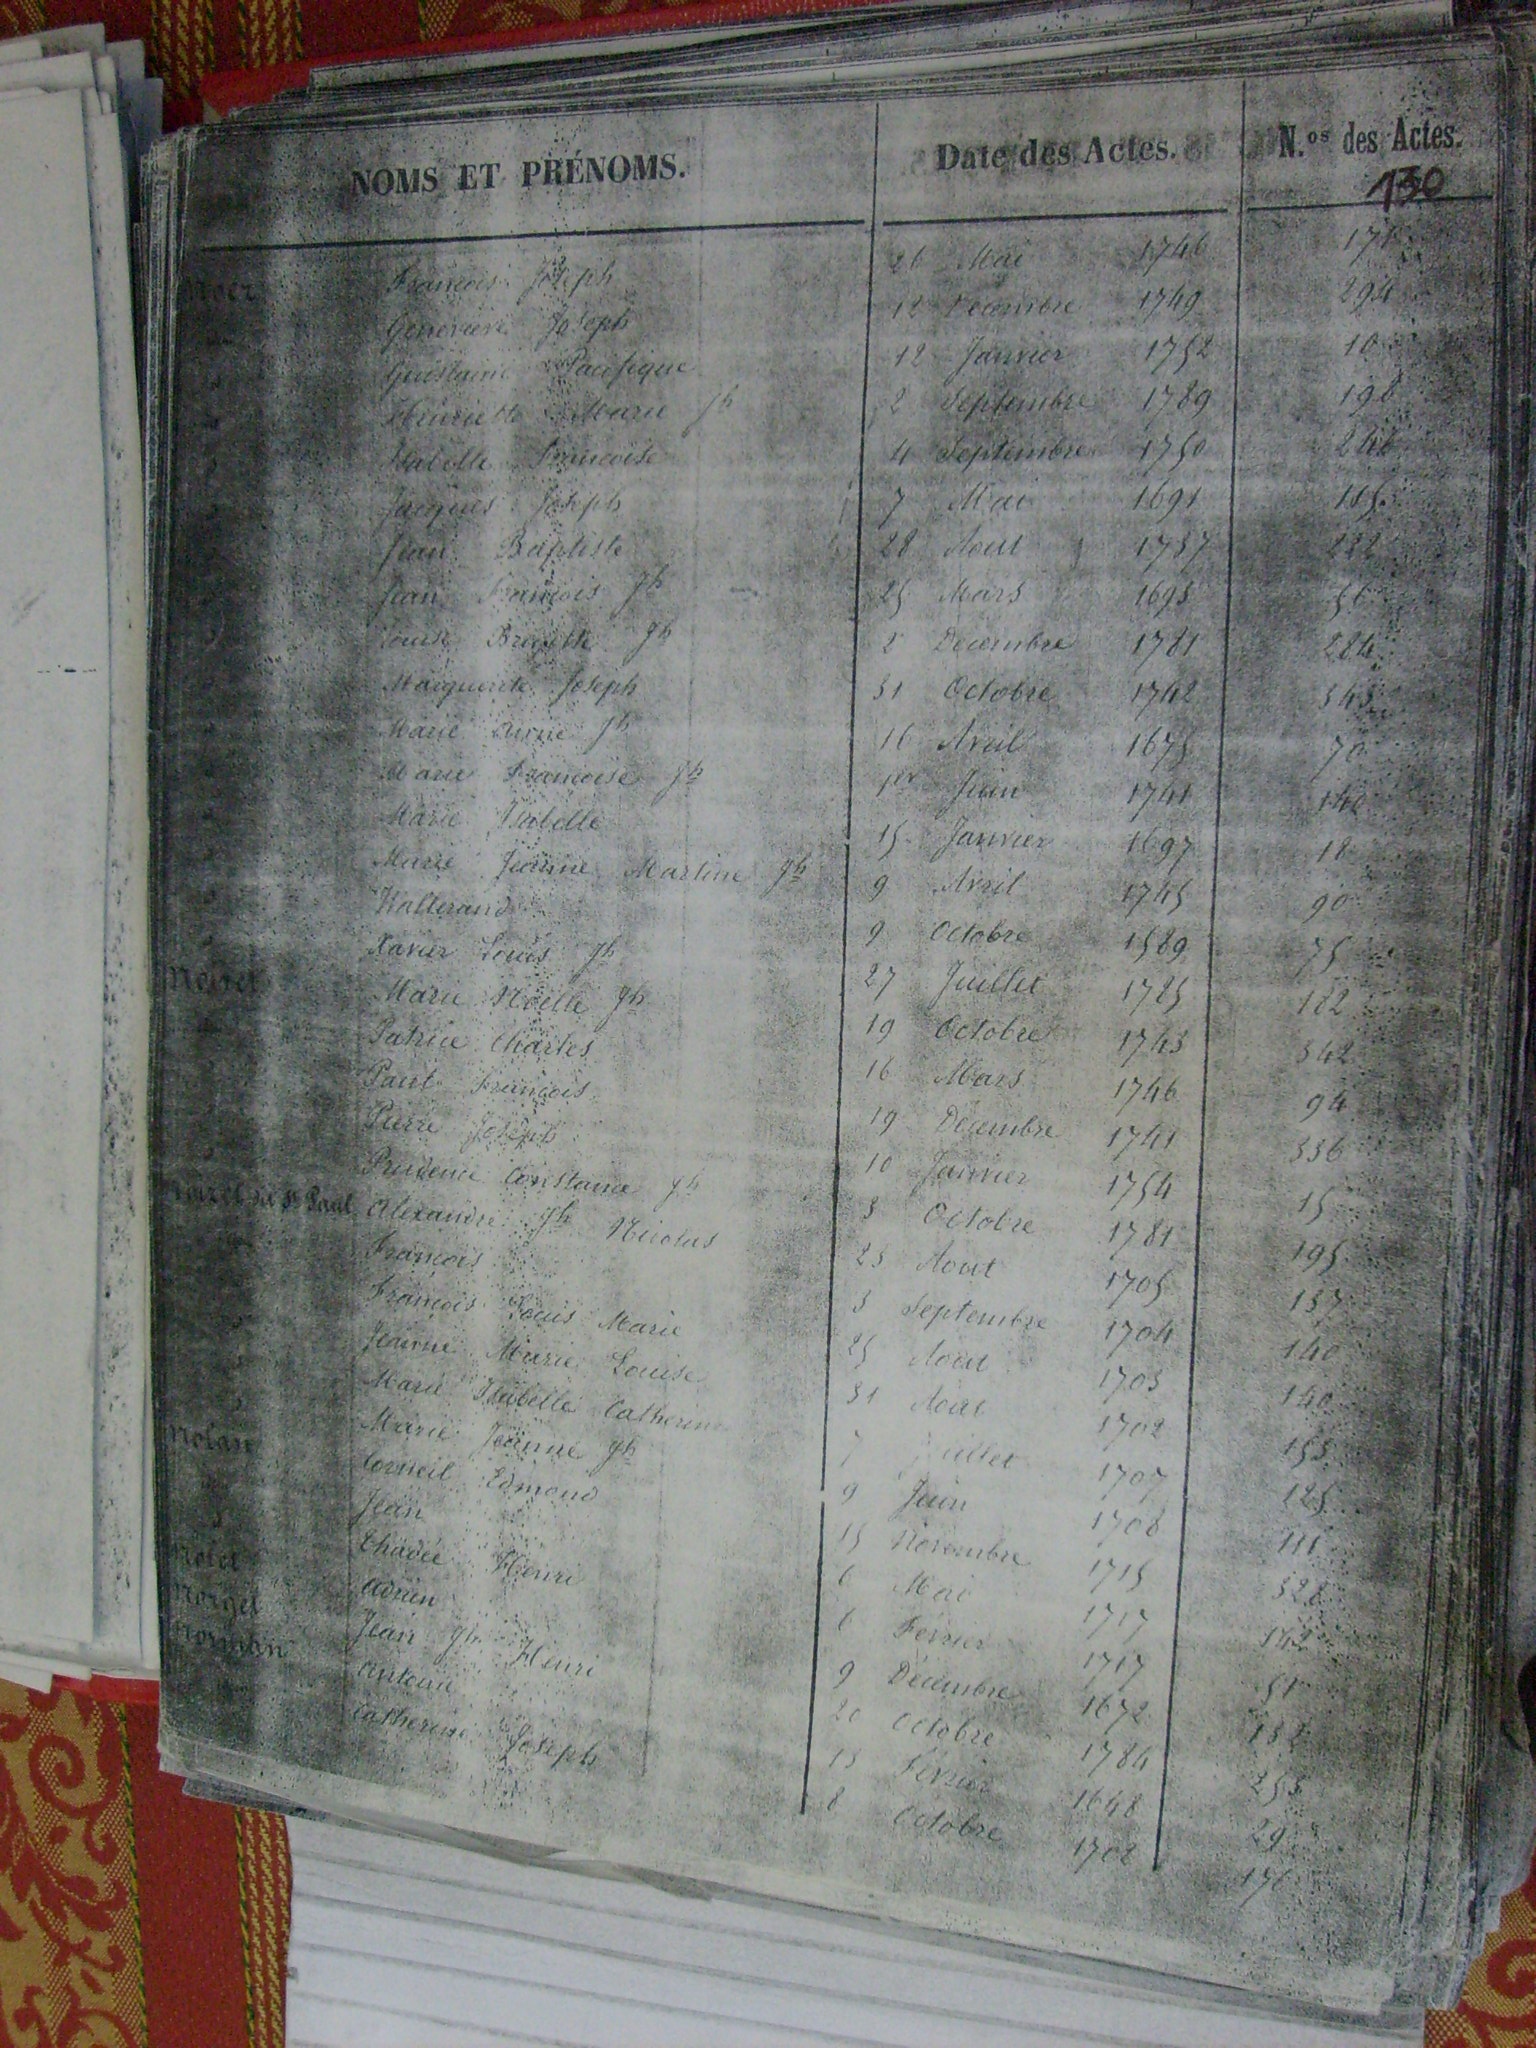 NOMS ET PRÉNOMS. Date des Actes. N.os des Actes.
130
Noer François Joseph 26 Mai 1746 171
Geneviève Joseph 12 Décembre 1749 294
Guislaine Pacifique 12 Janvier 1752 10
Henriette Marie Jh 2 Septembre 1789 198
Isabelle Françoise 4 Septembre 1750 246
Jacques Joseph 7 Mai 1691 115
Jean Baptiste 28 Aout 1737 222
Jean François Jh 25 Mars 1693 56
Louise Brigitte Jh 2 Décembre 1781 284
Marguerite Joseph 31 Octobre 1742 343
Marie Anne Jh 16 Avril 1675 70
Marie Françoise Jh 1er Juin 1741 140
Marie Isabelle 15 Janvier 1697 18
Marie Jeanne Martine Jh 9 Avril 1745 90
Walterand 9 Octobre 1589 75
Xavier Louis Jh 27 Juillet 1785 182
Noiret Marie Noëlle Jh 19 Octobre 1743 342
Patrice Charles 16 Mars 1746 94
Paul François 19 Décembre 1741 336
Pierre Joseph 10 Janvier 1754 15
Prudence Constance Jh 3 Octobre 1781 195
Noiret de St Paul Alexandre Jh Nicolas 23 Aout 1705 137
François 3 Septembre 1704 140
François Louis Marie 25 Aout 1703 140
Jeanne Marie Louise 31 Aout 1702 153
Marie Isabelle Catherine 7 Juillet 1707 125
Marie Jeanne Jh 9 Juin 1708 111
Nolan Corneil Edmond 15 Novembre 1715 328
Jean 6 Mai 1717 142
Thadée Henri 6 Février 1717 51
Adrien 9 Décembre 1672 132
Norget Jean Jh Henri 20 Octobre 1784 253
Antoine 13 Février 1648 29
Catherine Joseph 8 Octobre 1702 176